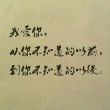 我爱你，
从你不知道的以前，
到你不知道的以后。